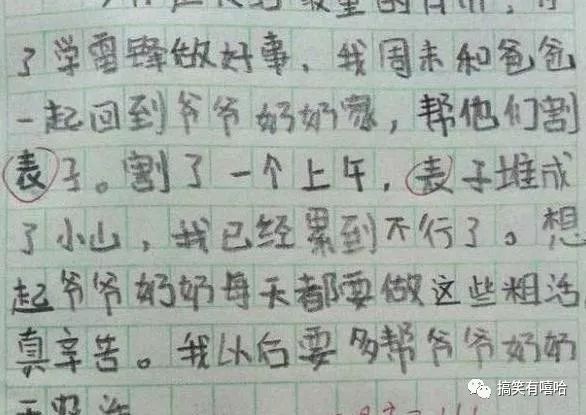 了学雷锋做好事，我周末和爸爸
一起回到爷爷奶奶家，帮他们割
表子。割了一个上午，表子堆成
了小山，我已经累到不行了。想
起爷爷奶奶每天都要做这些粗活
真辛苦。我以后要多帮爷爷奶奶
搞笑有嘻哈